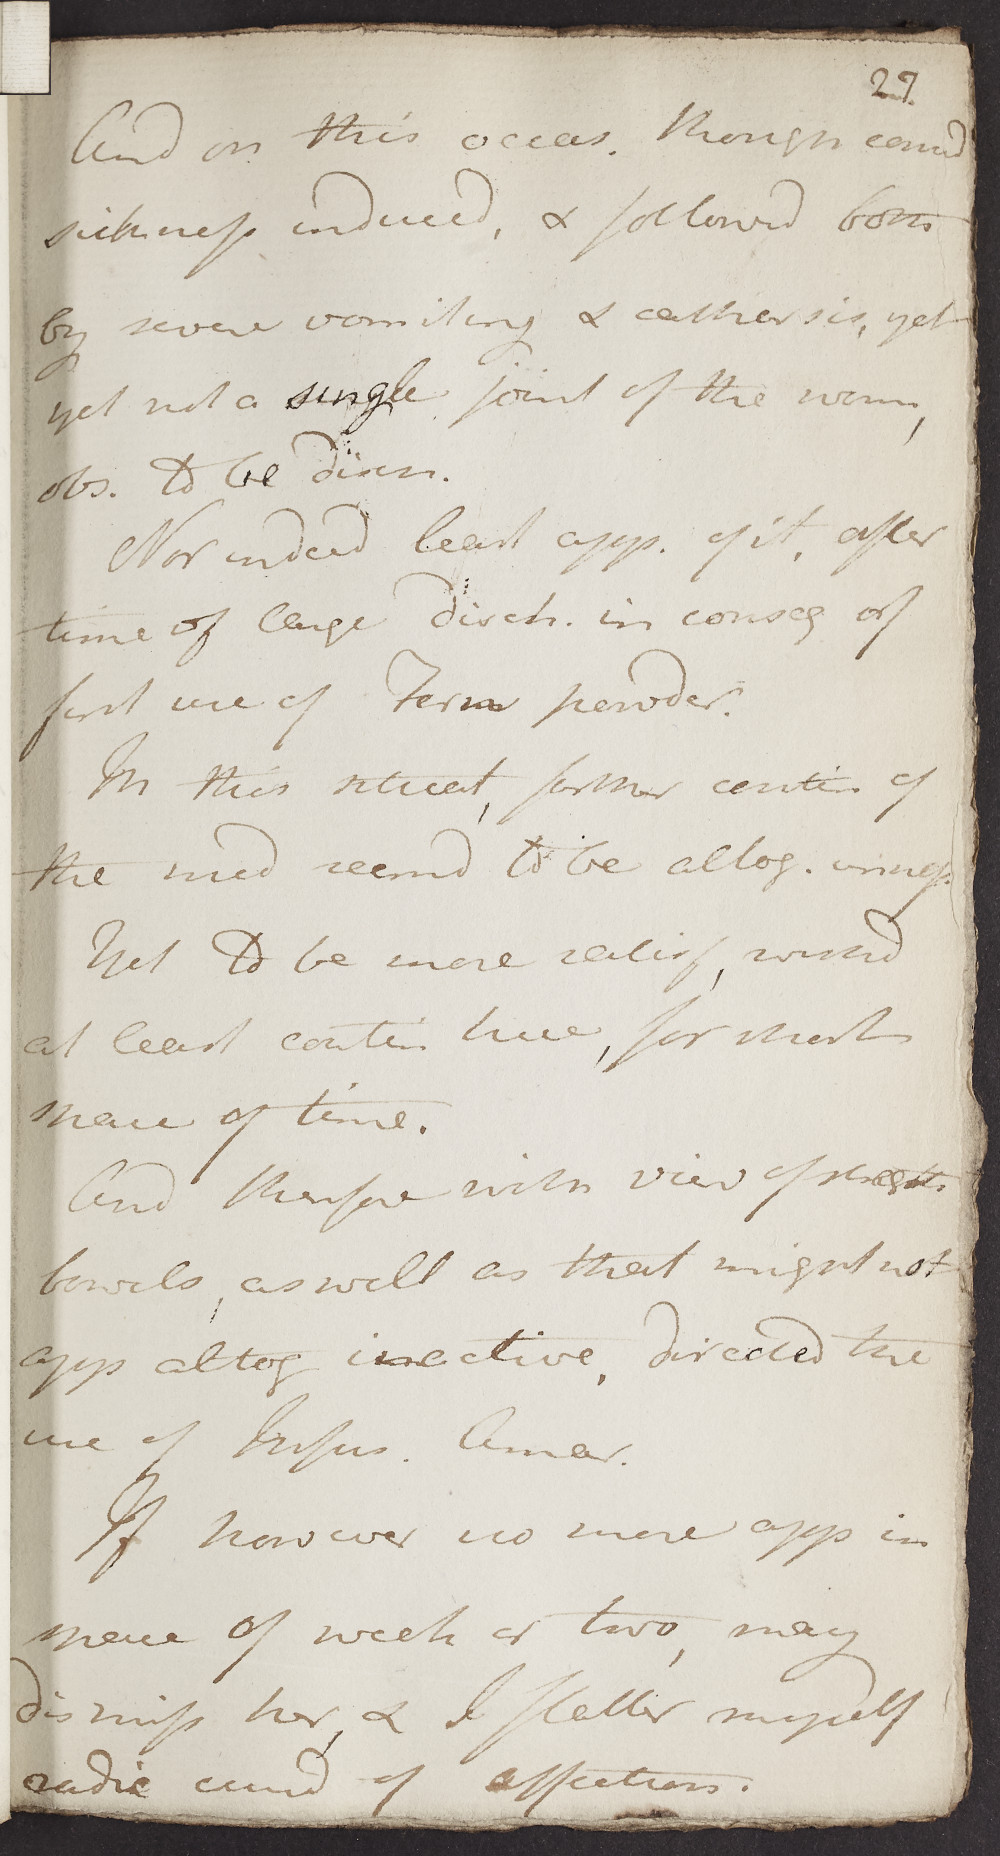 27
And on this occas. though consid
sickness induced, & followed both
by severe vomiting & catharsis, yet
yet not a single joint of the worm,
obs. to be disch.
Nor indeed least app. of it, after
time of large disch. in conseq of
first use of Fern powder.
In this situat, farther contin of
the med seemd to be altog. unness.
Yet to be more satisf, wishd
at least contin here, for short
space of time.
And therefore with view of strength
bowels, as well as that might not
app altog inactive, directed the
use of Infus. Amar.
If however no more app in
space of week or two, may
dismiss her, & I flatter myself
radic cured of affection.